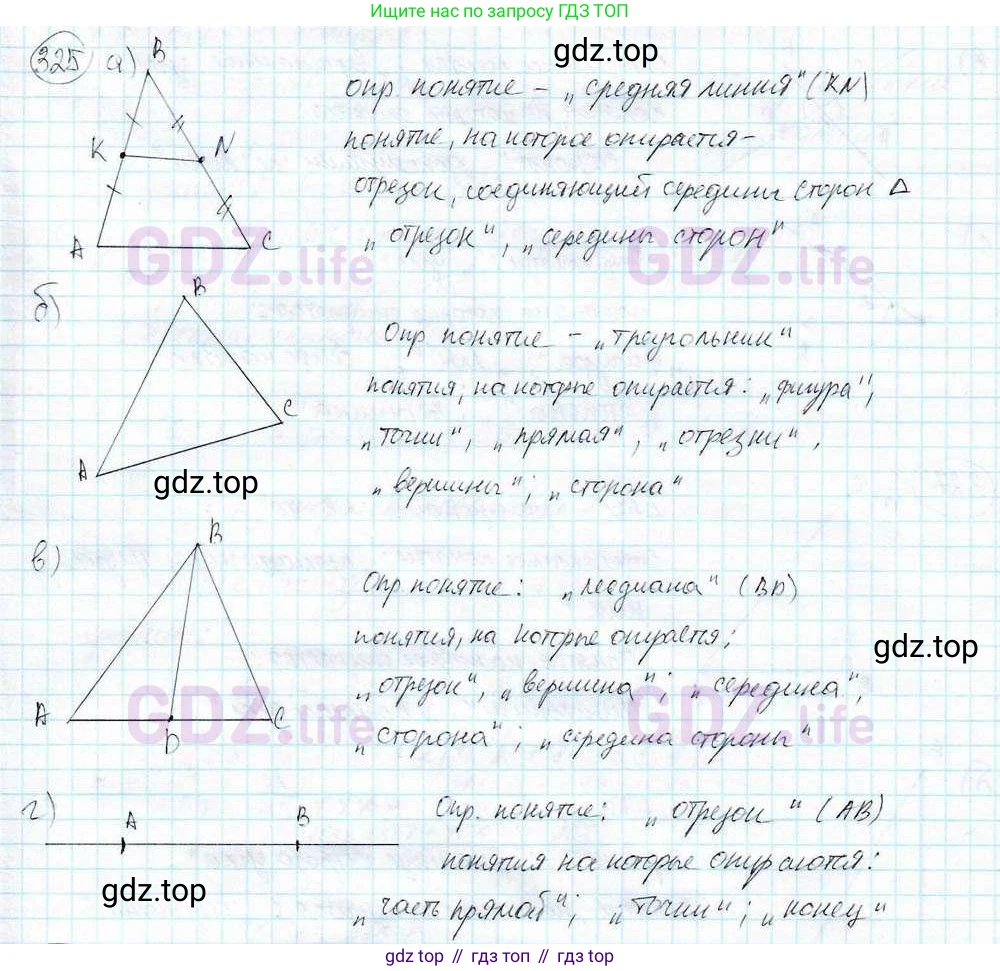 Ищите ответы по запросу ГДЗ ТОП
325 а) B
gdz.top
опр понятие – „средняя линия" (KN)
K N
понятие, на которое опирается –
отрезок, соединяющий середины сторон Δ
A C
„отрезок", „середины сторон"
GDZ.life GDZ.life
б) B
Опр понятие – „треугольник"
понятия, на которые опирается: „фигура",
C
„точки", „прямая", „отрезки",
A
gdz.top
„вершины"; „сторона"
в) B
Опр понятие: „медиана" (BD)
понятия, на которые опирается;
gdz.top
„отрезок", „вершина"; „середина",
A D C
GDZ.life GDZ.life
„сторона"; „середина стороны"
г) A B
Опр. понятие: „отрезок" (AB)
понятия на которые опираются:
gdz.top
„часть прямой"; „точки"; „конец"
gdz.top // гдз.топ // gdz.top // гдз.топ